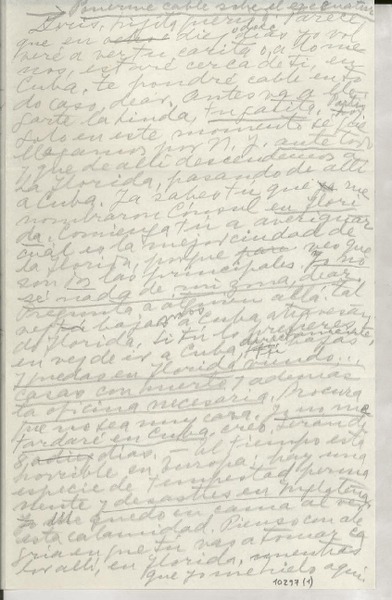 Ponerme cable sobre el exequatur
Doris, hijita querida: Parece
que en diez días yo vol
veré a ver tu carita, o, a lo me
nos, estaré cerca de ti, en
Cuba. Te pondré cable en to
do caso, dear, antes va a lle
garte la linda,
Solo en este momento sé si
llegamos por N.Y. ante todo
y que de allí descendemos a
La Florida, pasando de allí
a Cuba. Ya sabes tú que me
nombraron Consul en Flori
da. Comienza tú a averiguar
cuál es la mejor ciudad de
la Florida, porque veo que
son las principales. Yo no
sé nada de mi zona, dear.
Pregunta a alguien allá. Tal
vez bajamos a Cuba, atravesan
do Florida. Si tú lo prefieres,
en vez de ir a Cuba, bajas
y quedas en Florida viendo...
casas con muerte y además
la oficina necesaria. Procura
que no sea muy cara. Yo no me
tardaré en Cuba. Creo, serán
8 días. — El tiempo está
horrible en Europa; hay una
especie de tempestad perma
nente y desastres en Inglaterra.
Me quedo en cama al ver
esta calamidad. Pienso con ale
gría en que tú vas a tomar ca
lor allí, en Florida, mientras
que yo me hielo aquí.
10297 (1)